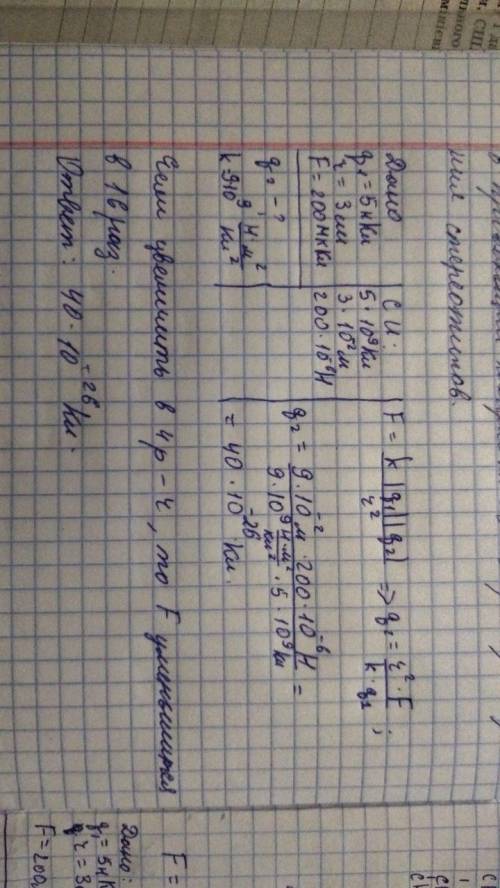 ния стереотипов.
Дано
q₁ = 5 нКл
r = 3 см
F = 200 мкН
q₂ - ?
k 9·10⁹ Н·м²/Кл²
СИ.
5·10⁹ Кл
3·10⁻²м
200·10⁻⁶Н
F = k |q₁||q₂| / r² => q₁ = r²·F / k·q₂ ;
q₂ = 9·10⁻² м · 200·10⁻⁶ Н / 9·10⁹ Н·м²/Кл² · 5·10⁹ Кл =
= 40·10⁻²⁶ Кл.
Если увеличить в 4р - r, то F уменьшится
в 16 раз.
Ответ: 40·10⁻²⁶ Кл.
F =
Дано:
q₁ = 5н
r = 3
F = 200